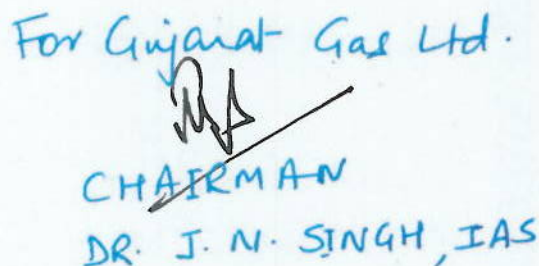 For Gujarat Gas Ltd.
CHAIRMAN
DR. J. N. SINGH, IAS